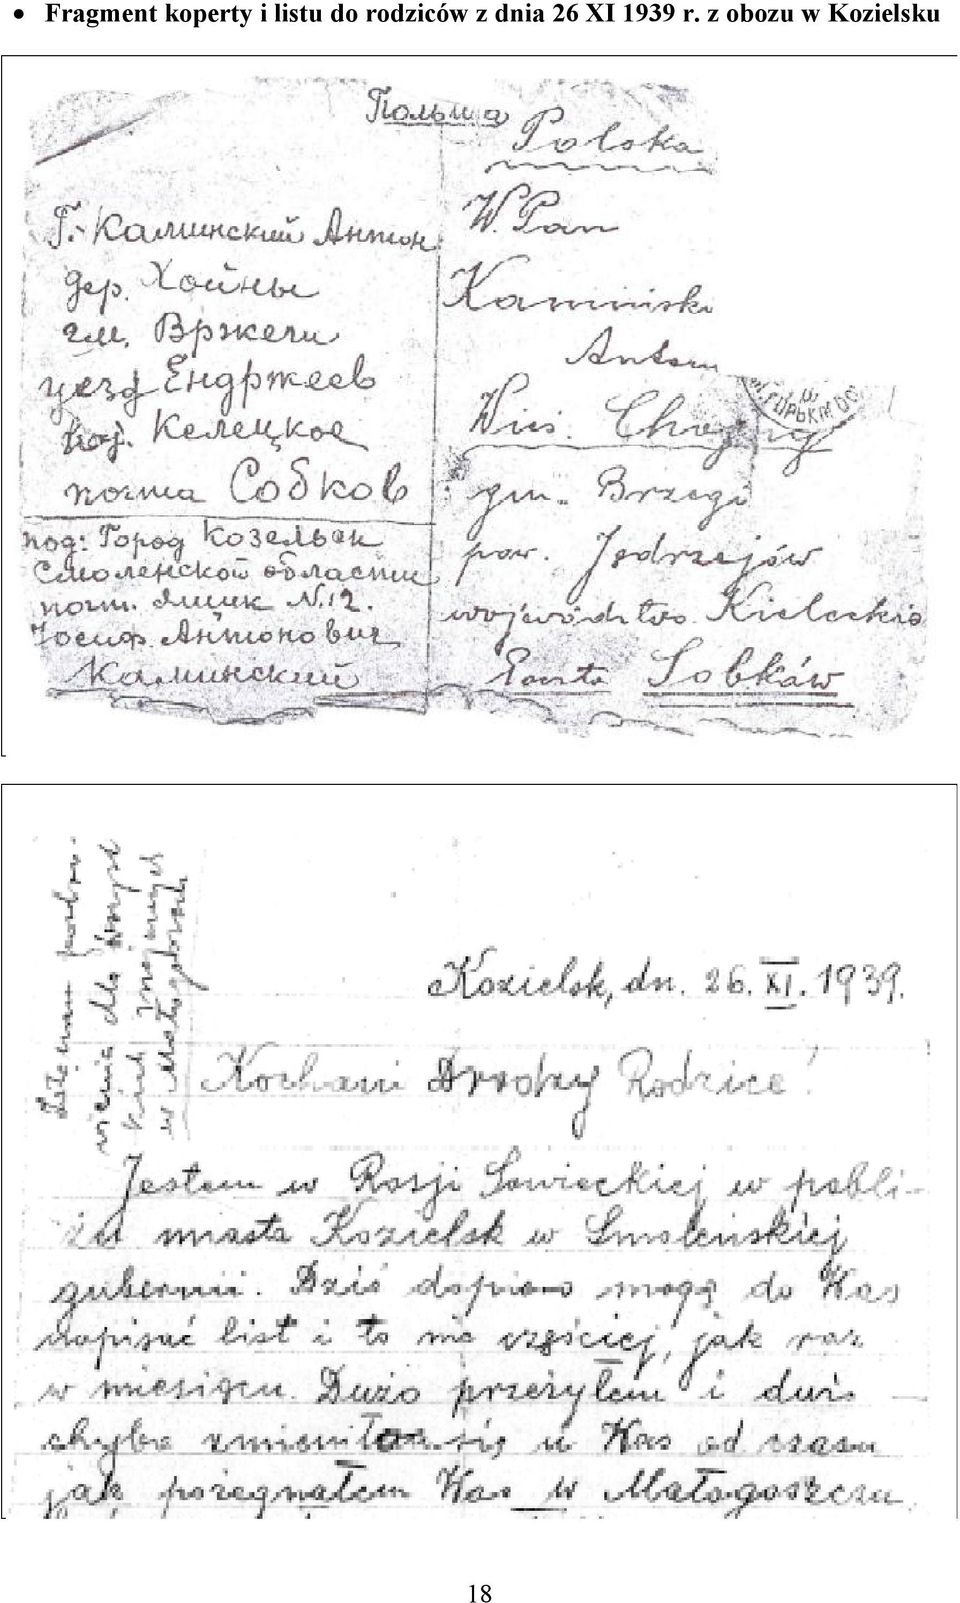 • Fragment koperty i listu do rodziców z dnia 26 XI 1939 r. z obozu w Kozielsku
Польша
Г. Калинский Антон
дер. Хойны
гм. Вржеги
уезд Ендржеев
Келецкое
почта Собков
Город Козельск
Смоленской области
почт. Ящик N. 12.
Иосиф Антонович
Калинский
Polska
W. Pan
Kamiński
Antoni
Wieś.
gm. Brzegi
pow. Jędrzejów
województwo Kieleckie
Poczta Sobków
Zalecam pozdro-
wienia dla
Kozielsk, dn. 26. XI. 1939.
Kochani Drodzy Rodzice!
Jestem w Rosji Sowieckiej w pobli-
żu miasta Kozielsk w Smoleńskiej
gubernii. Dziś dopiero mogę do Was
napisać list i to nie częściej, jak raz
w miesiącu. Dużo przeżyłem i dużo
chyba zmieniło się u Was od czasu
jak pożegnałem Was w Małogoszczu
18